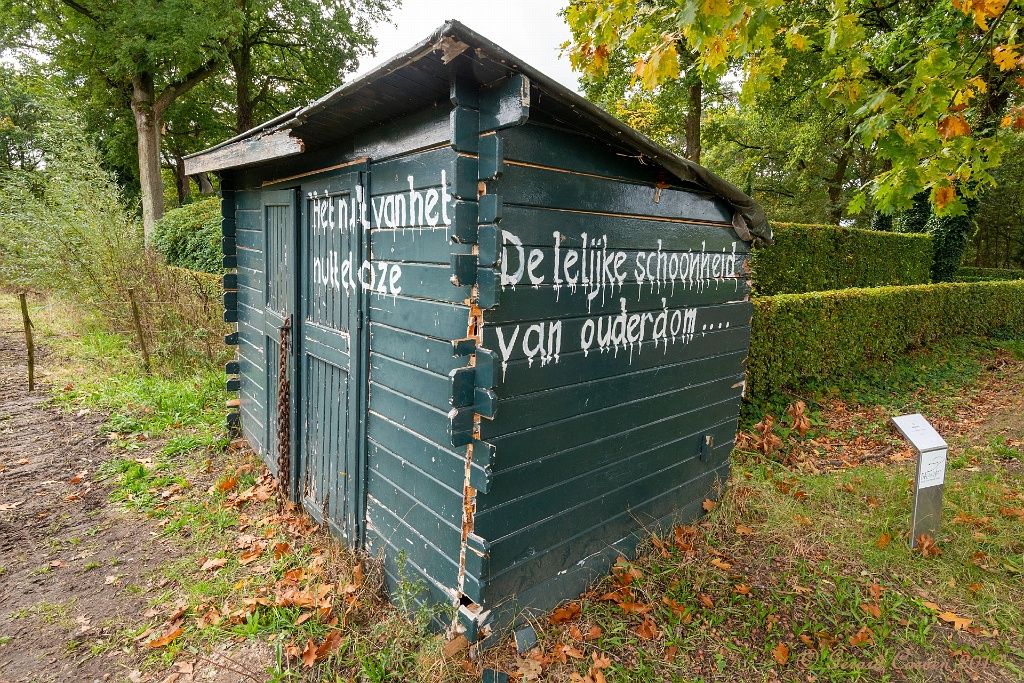 Het nut van het
nutteloze
De lelijke schoonheid
van ouderdom....